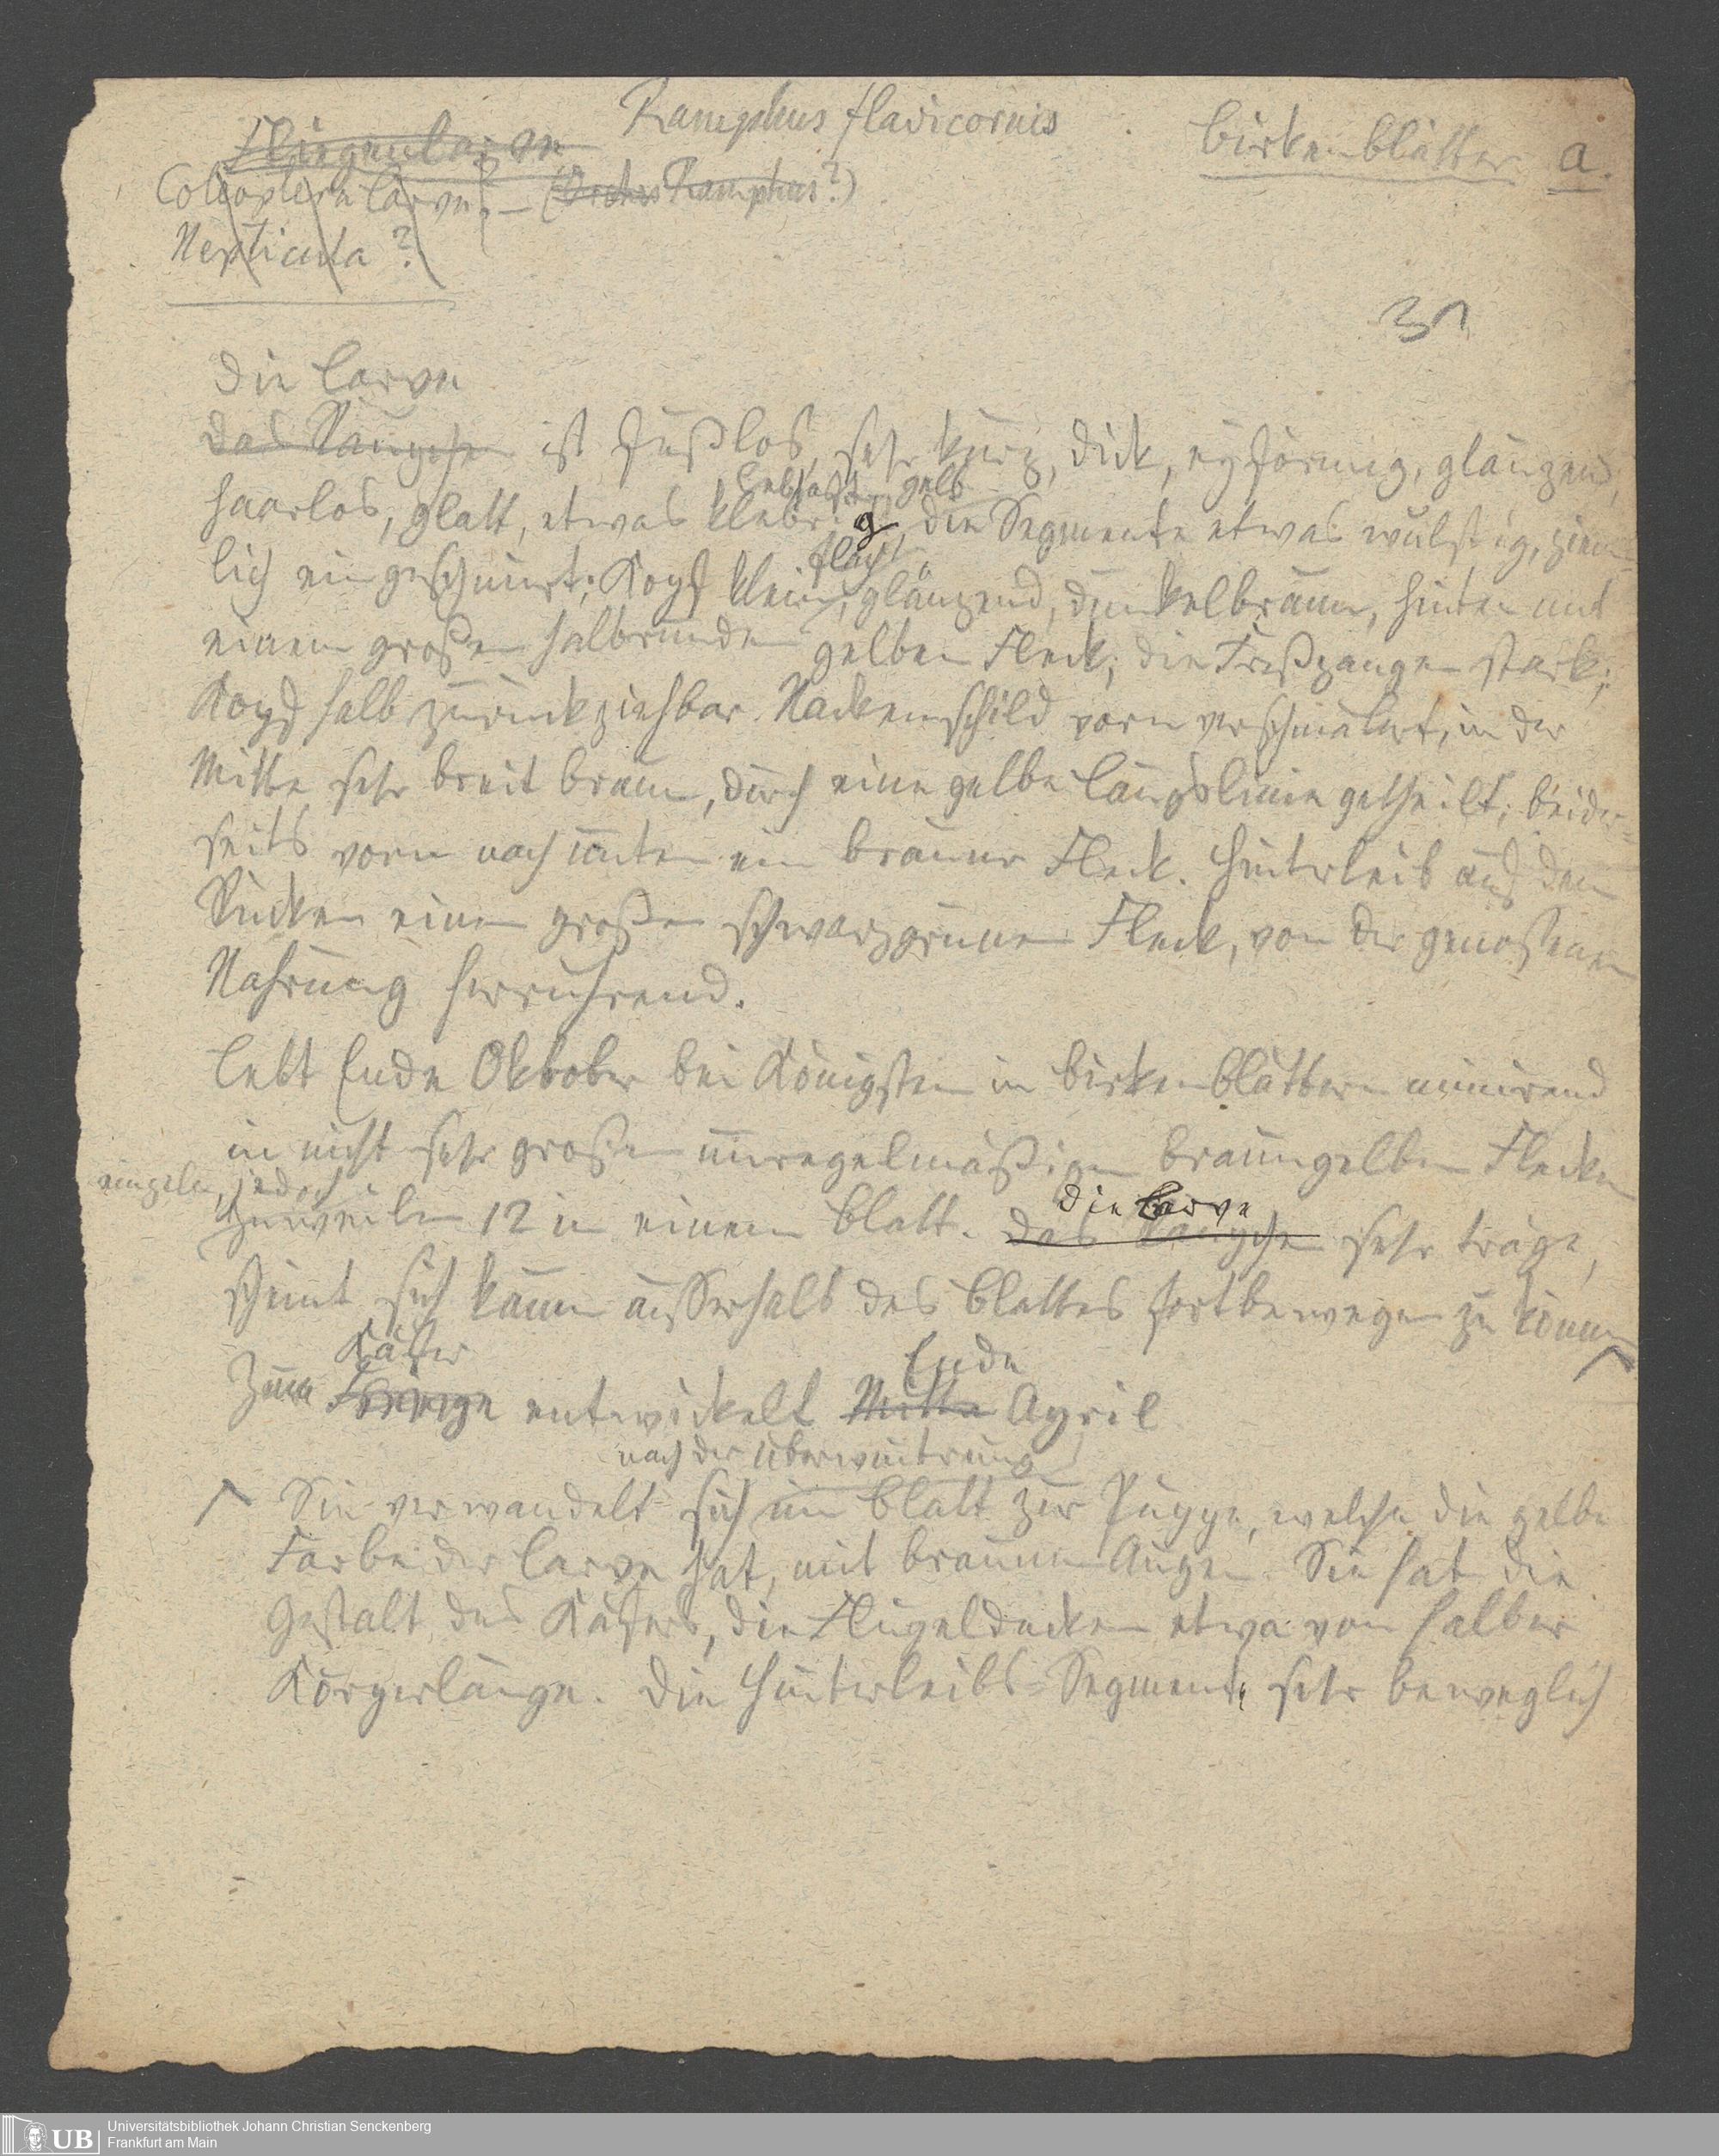 Ramphus flavicornis
Birkenblätter a.
Fliegenlarve
Coleoptern Larve? – (Orchestes Ramphus?)
Nepticula?
31
Die Larve
Das Räupchen ist fußlos, sehr kurz, dick, eyförmig, glänzend,
lebhaft gelb
haarlos, glatt, etwas klebrig, die Segmente etwas wulstig, ziem-
flach
lich eingeschnürt; Kopf klein, glänzend, dunkelbraun, hinten mit
einem großen halbrunden gelben Fleck; die Freßzangen stark;
Kopf halb zurückziehbar. Nackenschild vorn verschmälert, in der
Mitte sehr breit braun, durch eine gelbe Längslinie getheilt; beider-
seits vorn nach unten ein brauner Fleck. Hinterleib auf dem
Rücken einen großen schwarzgrünen Fleck, von der genoßenen
Nahrung herrührend.
Lebt Ende Oktober bei Königstein in Birkenblättern minirend
in nicht sehr großen unregelmäßigen braungelben Flecken
einzeln, jedoch
zuweilen 12 in einem Blatt. Das Räupchen sehr träge,
die Larve
scheint sich kaum außerhalb des Blattes fortbewegen zu können
Käfer
Ende
Zum Fliege entwickelt Mitte April
nach der Überwinterung
Sie verwandelt sich im Blatt zur Puppe, welche die gelbe
Farbe der Larve hat, mit braunen Augen. Sie hat die
Gestalt des Käfers, die Flügeldecken etwa von halber
Körperlänge. Die Hinterleibs-Segmente sehr beweglich
UB
Universitätsbibliothek Johann Christian Senckenberg
Frankfurt am Main